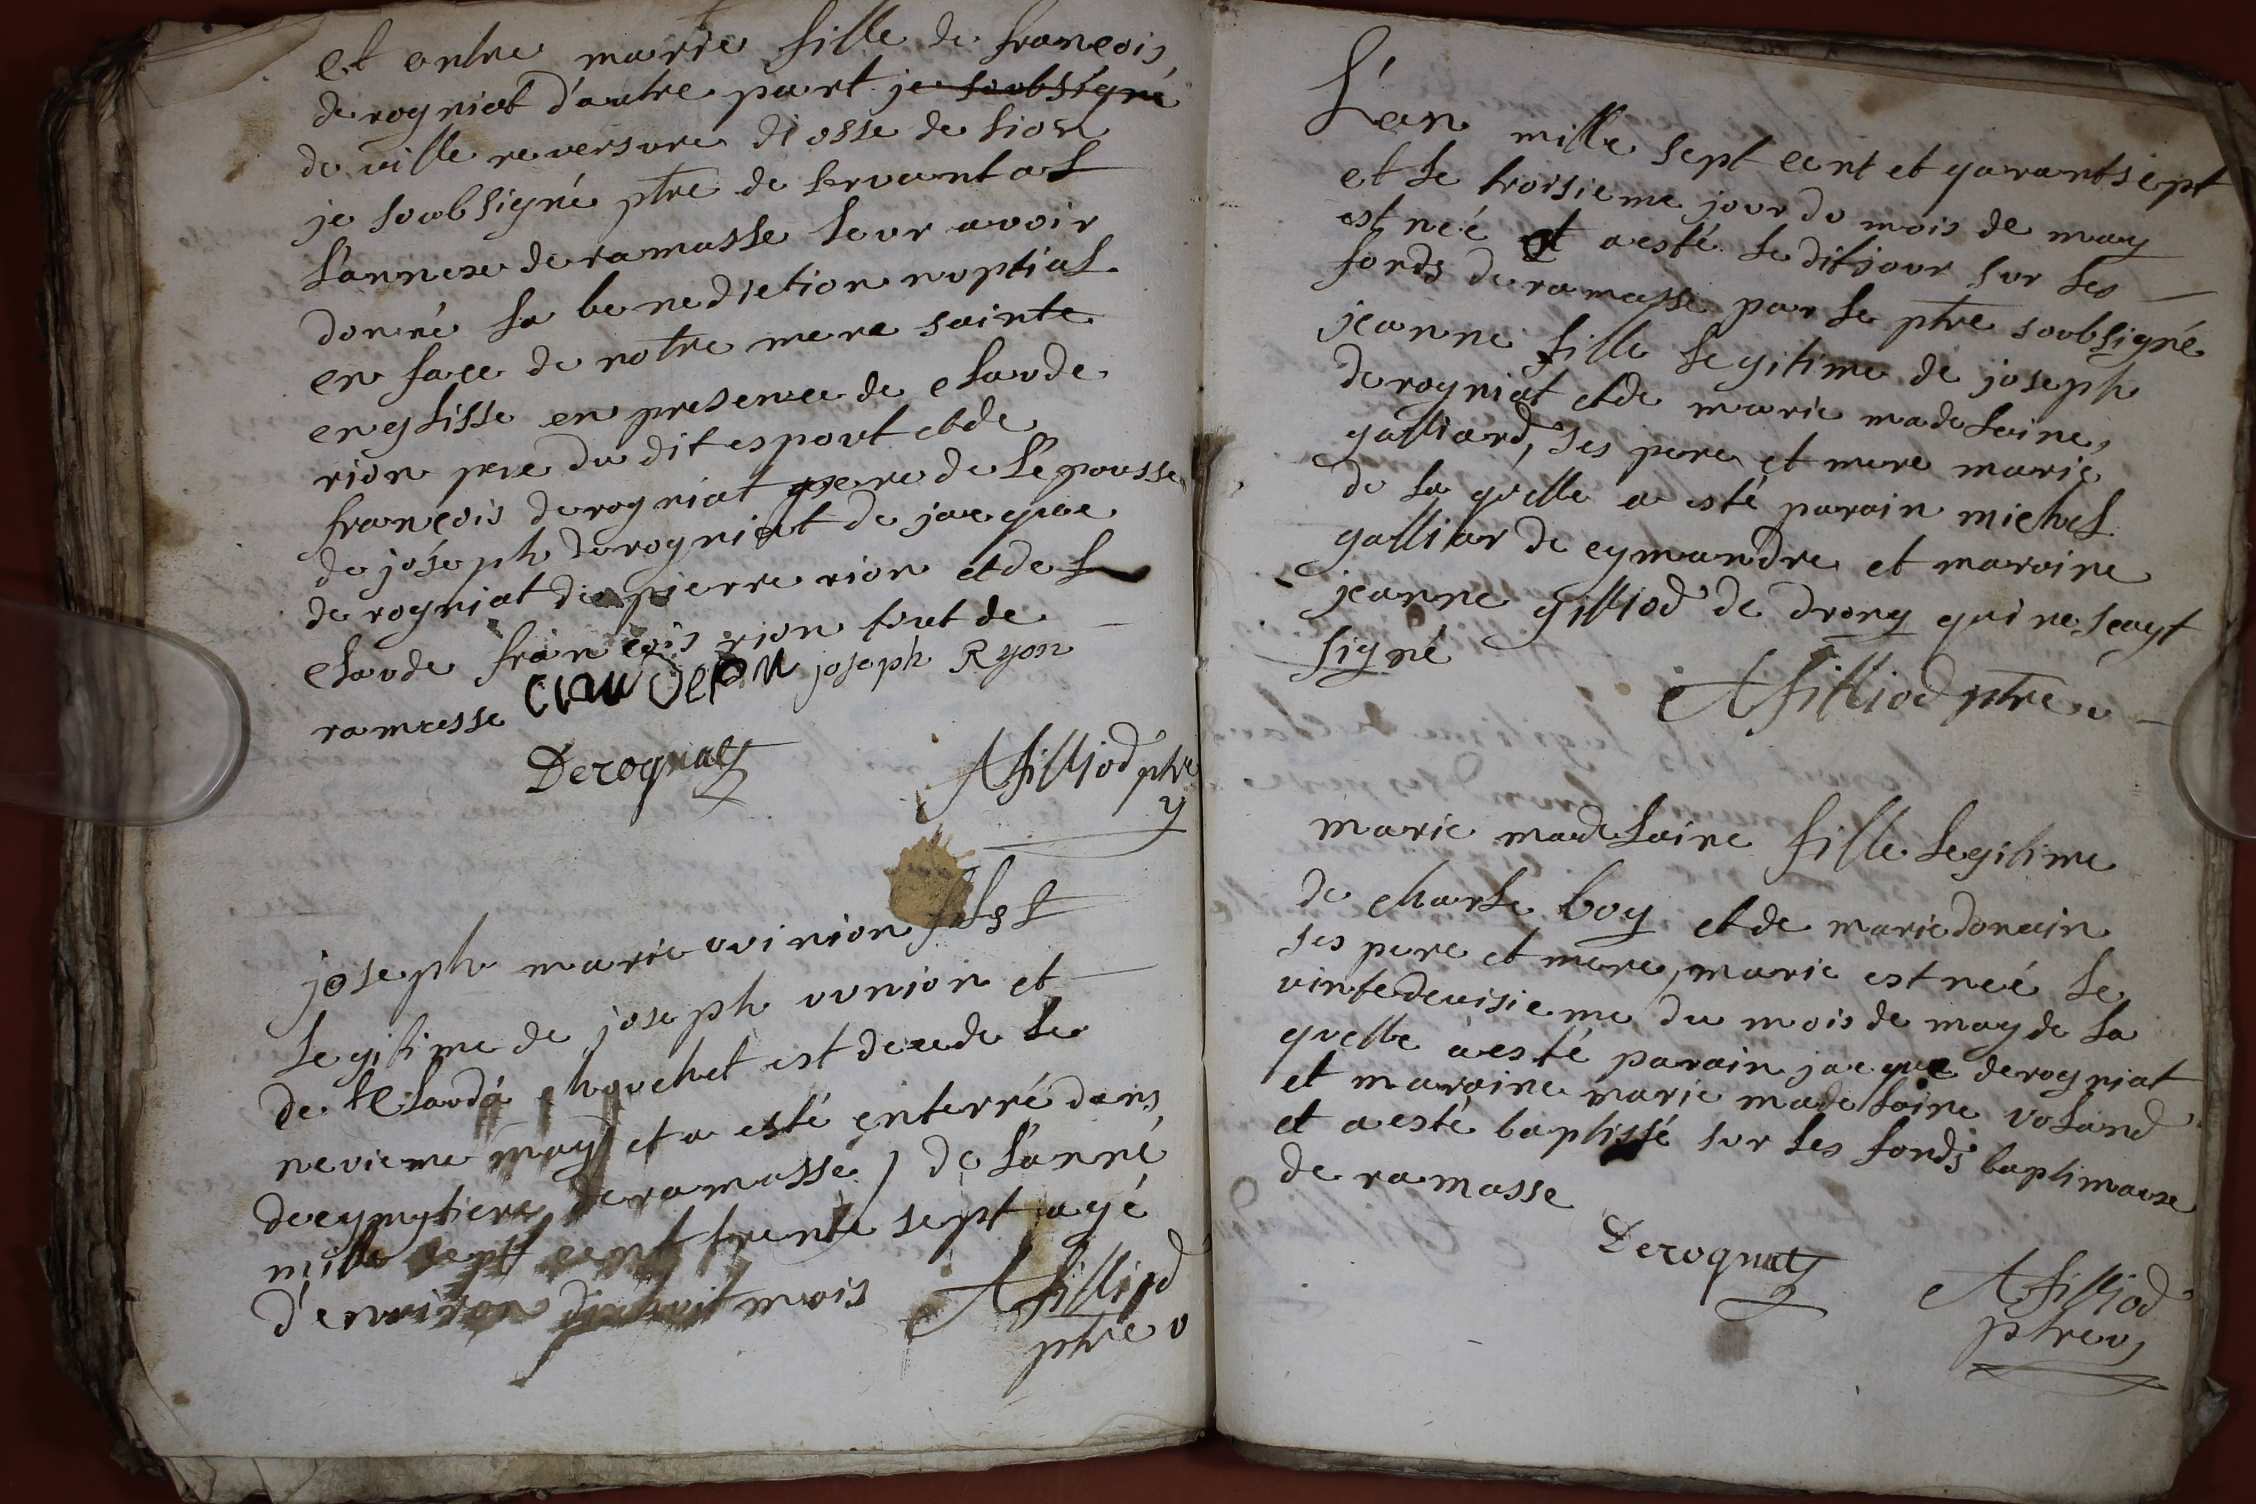 et entre marie fille de françois
derogniat d'autre part je soubsigné
de ville reversure diosse de lion
je soubsigné ptre de servant a L
L'annexe de ramasse leur avoir
donné la benediction nuptial
en face de notre mere sainte
englisse en presence de claude
rion pere du dit espout et de
françois derogniat pere de l'epousse
de joseph derogniat de jacque
derogniat de pierre rion et de
claude françois rion tout de
ramasse joseph Ryon
Derognat
A filliod ptre
joseph marie ovinion fils
legitime de joseph uvnion et
de Clauda chouchet est decede le
nevieme may et a esté enterré dans
de cymytiere de ramasse de l'anné
mille sept cent trente sept agé
d'environ mois
A filliod
ptre v
L'an mille sept cent et garantsept
et le troisieme jour du mois de may
est neé et a esté le dit jour sur les
fonds de ramasse par le ptre soubsigné
jeanne fille legitime de joseph
derogniat et de marie madelaine
galliard, ses pere et mere marie
de la quelle a esté parain michel
galliar de eymandre et maraine
jeanne gilliod de drony qui ne scayt
signé
A filliod ptre v
marie madelaine fille legitime
de charle boy et de marie donain
ses pere et mere, marie est neé le
vintedeuisieme du mois de may de la
quelle à esté parain jacque derogniat
et maraine marie madelaine voland
et a esté baptissé sur les fonds baptimause
de ramasse
Derognat
A filliod
ptre v